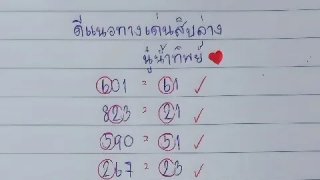 ดีแนวทางเด่นสิบล่าง
ปู่น้ำทิพย์ ❤
601 = 61 ✓
823 = 21 ✓
590 = 51 ✓
267 = 23 ✓